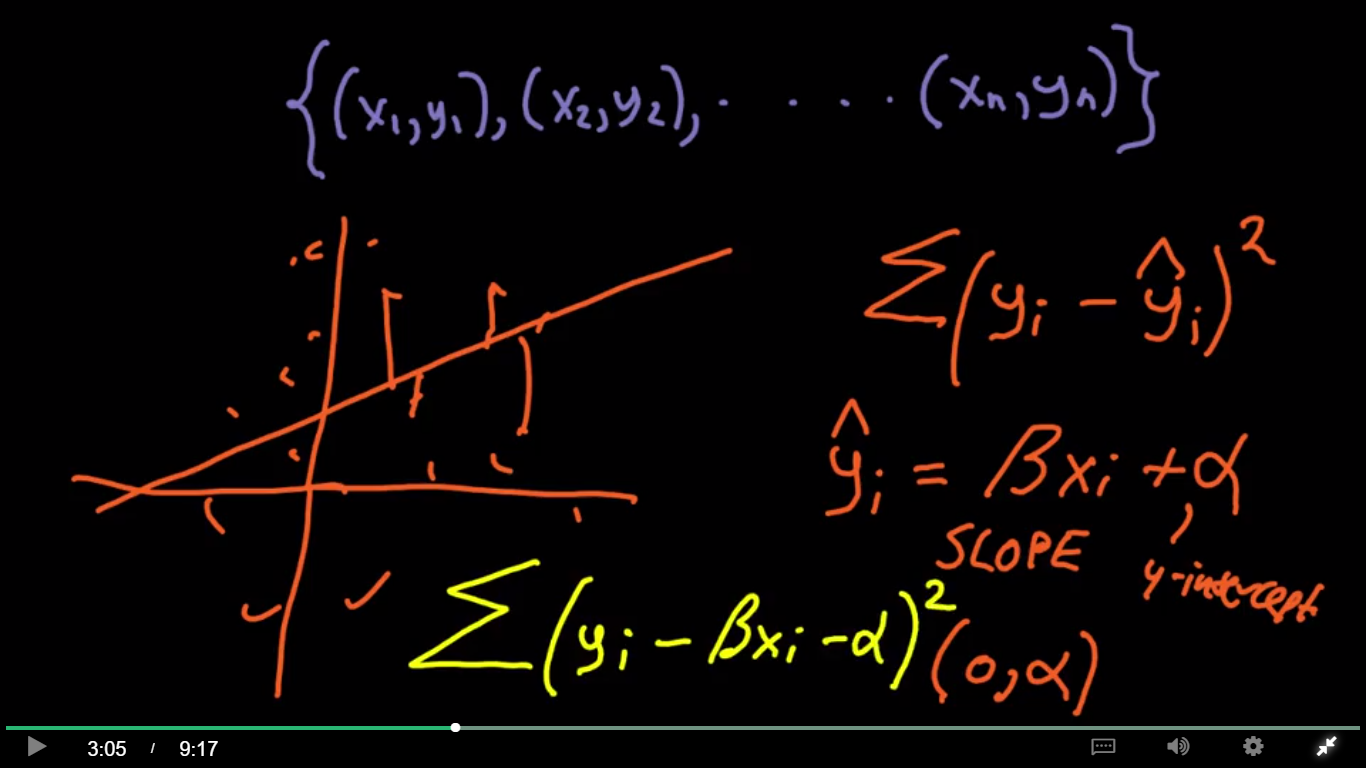 {(x₁,y₁),(x₂,y₂),. . . .(xₙ,yₙ)}
∑(yᵢ - ŷᵢ)²
ŷᵢ = βxᵢ + α
SLOPE
y-intercept
∑(yᵢ - βxᵢ - α)²
(0,α)
3:05 / 9:17